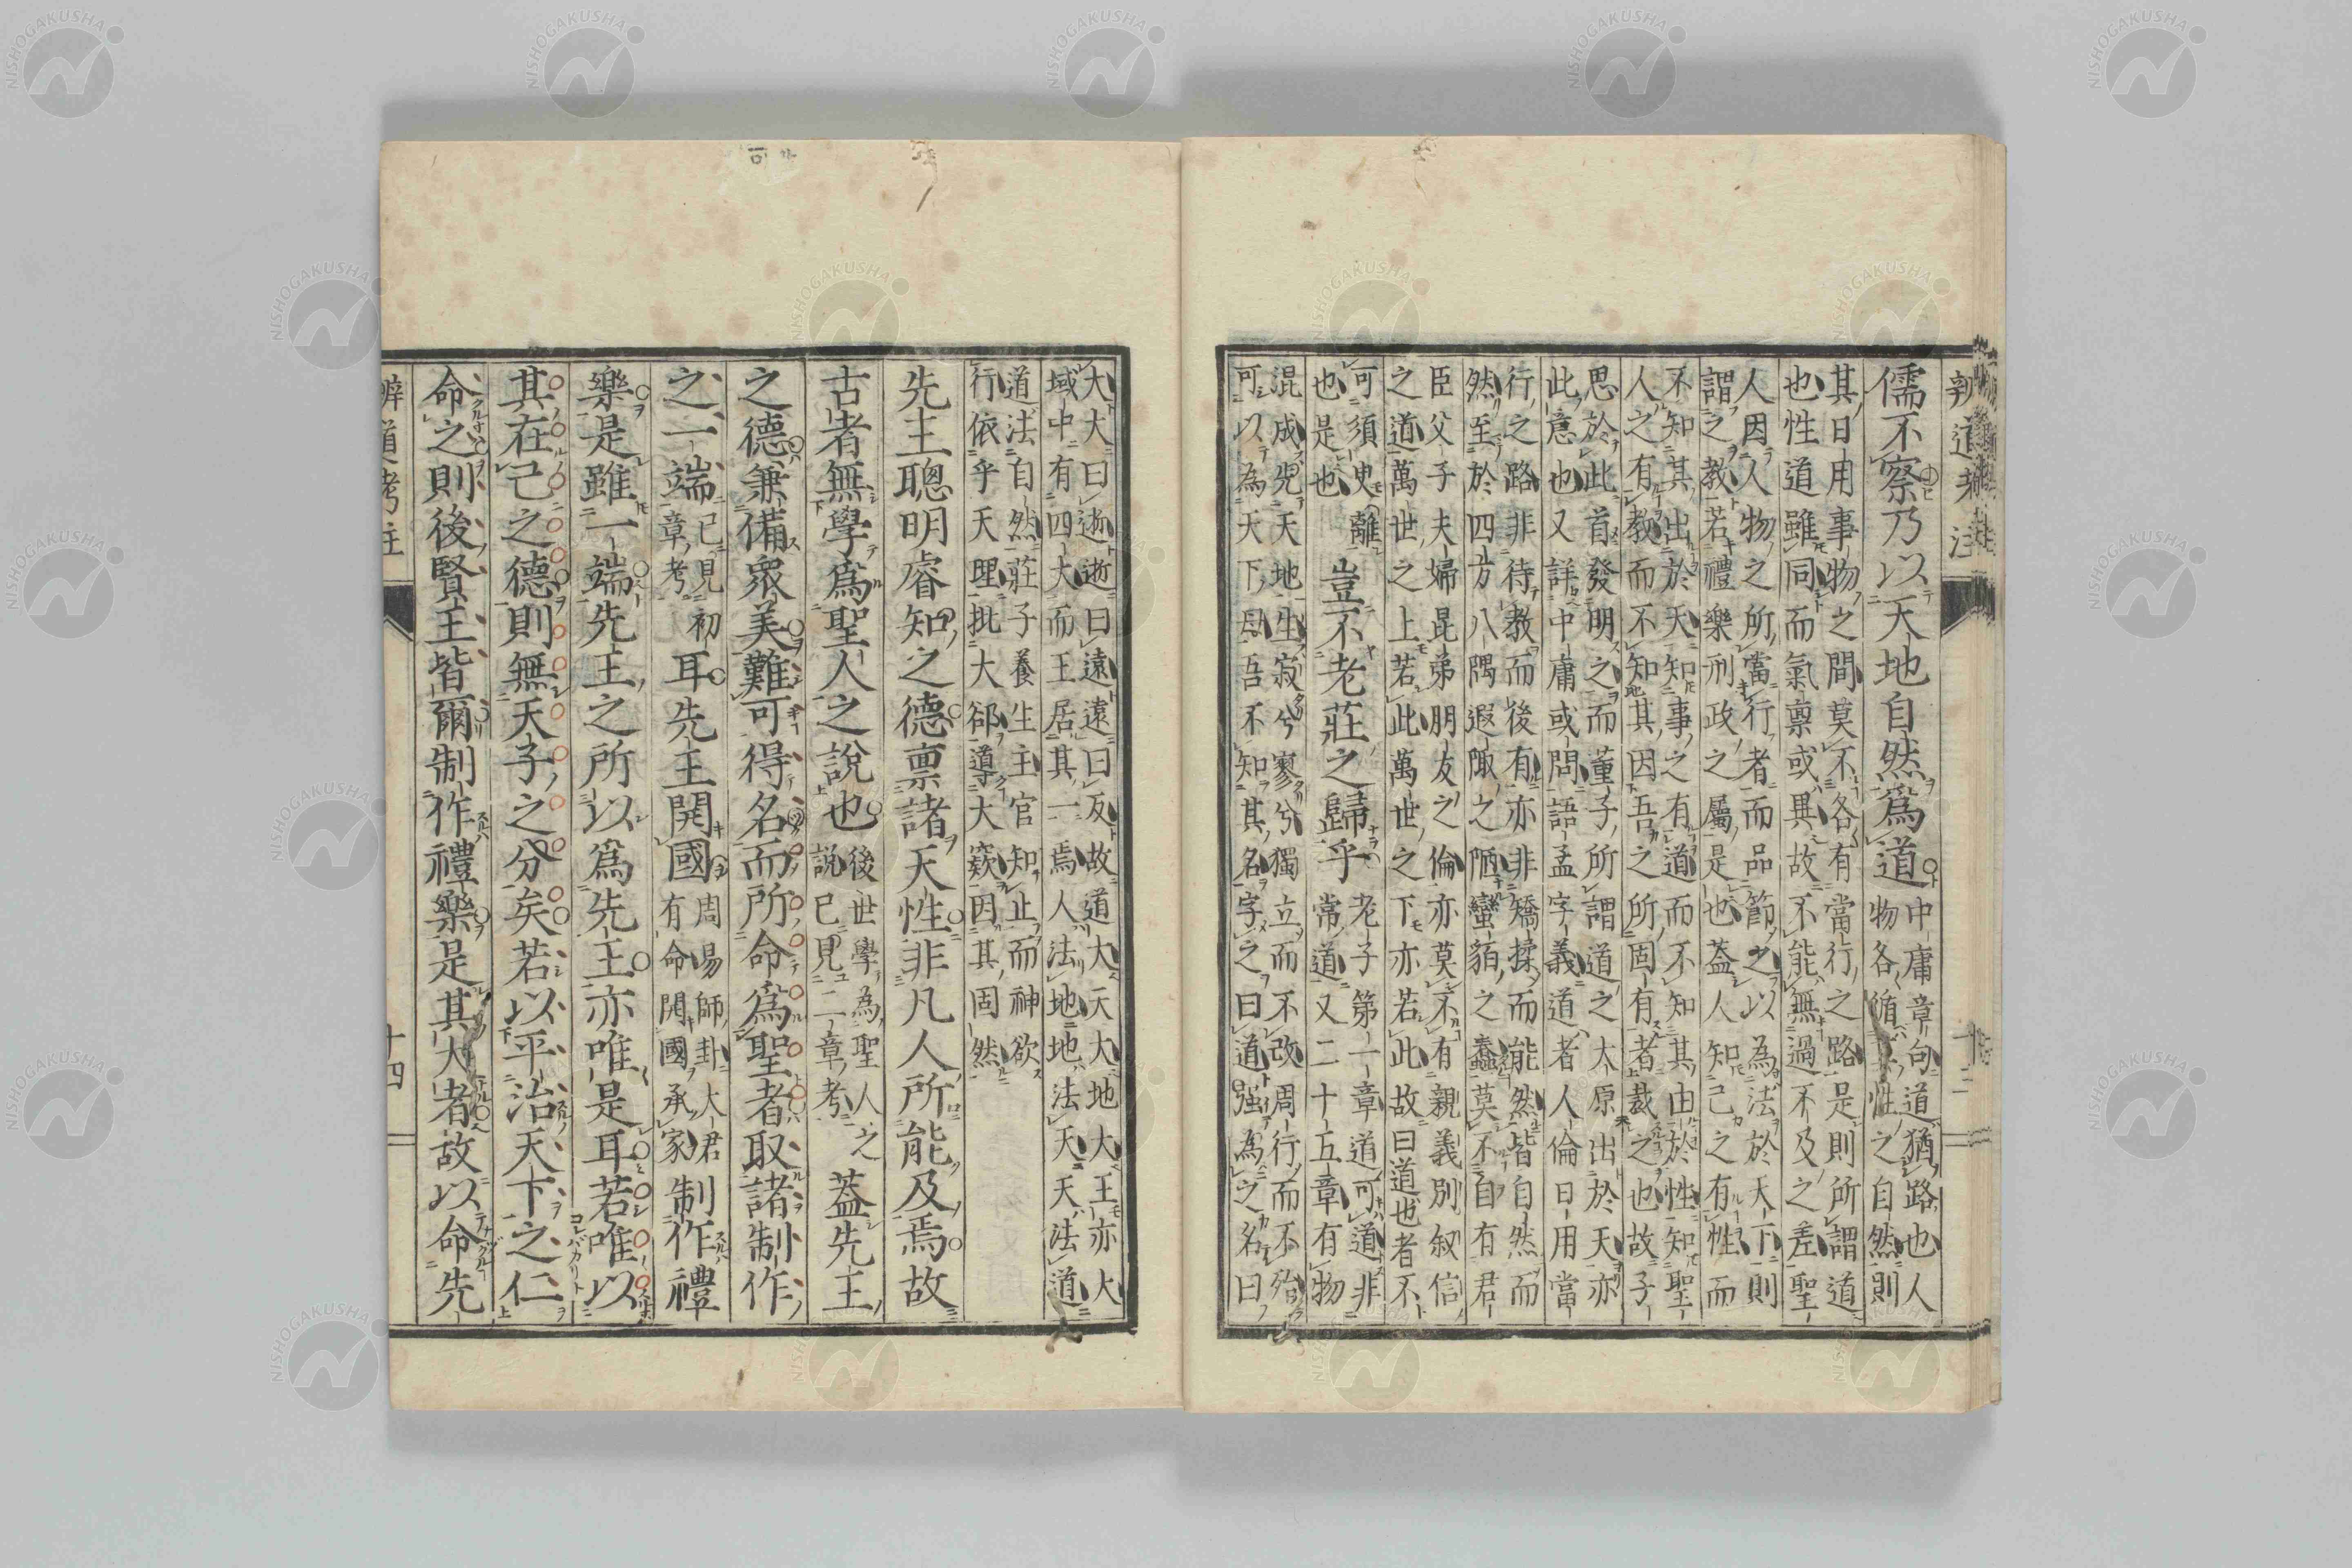 辨道考注
儒不察乃以天地自然爲道
中庸章句道猶路也人
物各循其性之自然則
其日用事物之間莫不各有當行之路是則所謂道
也性道雖同而氣禀或異故不能無過不及之差聖
人因人物之所當行者而品節之以為法於天下則
謂之教若禮樂刑政之屬是也蓋人知己之有性而
不知其出於天知事之有道而不知其由於性知聖
人之有教而不知其因吾之所固有者裁之也故子
思於此首發明之而董子所謂道之大原出於天亦
此意也又詳中庸或問語孟字義道者人倫日用當
行之路非待教而後有亦非矯揉而能然皆自然而
然至於四方八隅遐陬之陋蠻貊之蠢莫不自有君
臣父子夫婦昆弟朋友之倫亦莫不有親義別叙信
之道萬世之上若此萬世之下亦若此故曰道也者不
可須臾離
也是也
豈不老莊之歸乎
老子第一章道可道非
常道又二十五章有物
混成先天地生寂兮寥兮獨立而不改周行而不殆
可以為天下母吾不知其名字之曰道强為之名曰
大大曰逝逝曰遠遠曰反故道大天大地大王亦大
域中有四大而王居其一焉人法地地法天天法道
道法自然莊子養生主官知止而神欲
行依乎天理批大郤導大窾因其固然
先王聰明睿知之德禀諸天性非凡人所能及焉故
古者無學爲聖人之說也
後世學為聖人之
説已見二章考
蓋先王
之德兼備衆美難可得名而所命爲聖者取諸制作
之一端
已見初
章考
耳先王開國
周易師卦大君
有命開國承家
制作禮
樂是雖一端先王之所以爲先王亦唯是耳若唯以
其在己之德則無天子之分矣若以平治天下之仁
命之則後賢王皆爾制作禮樂是其大者故以命先
辨道考注
十四